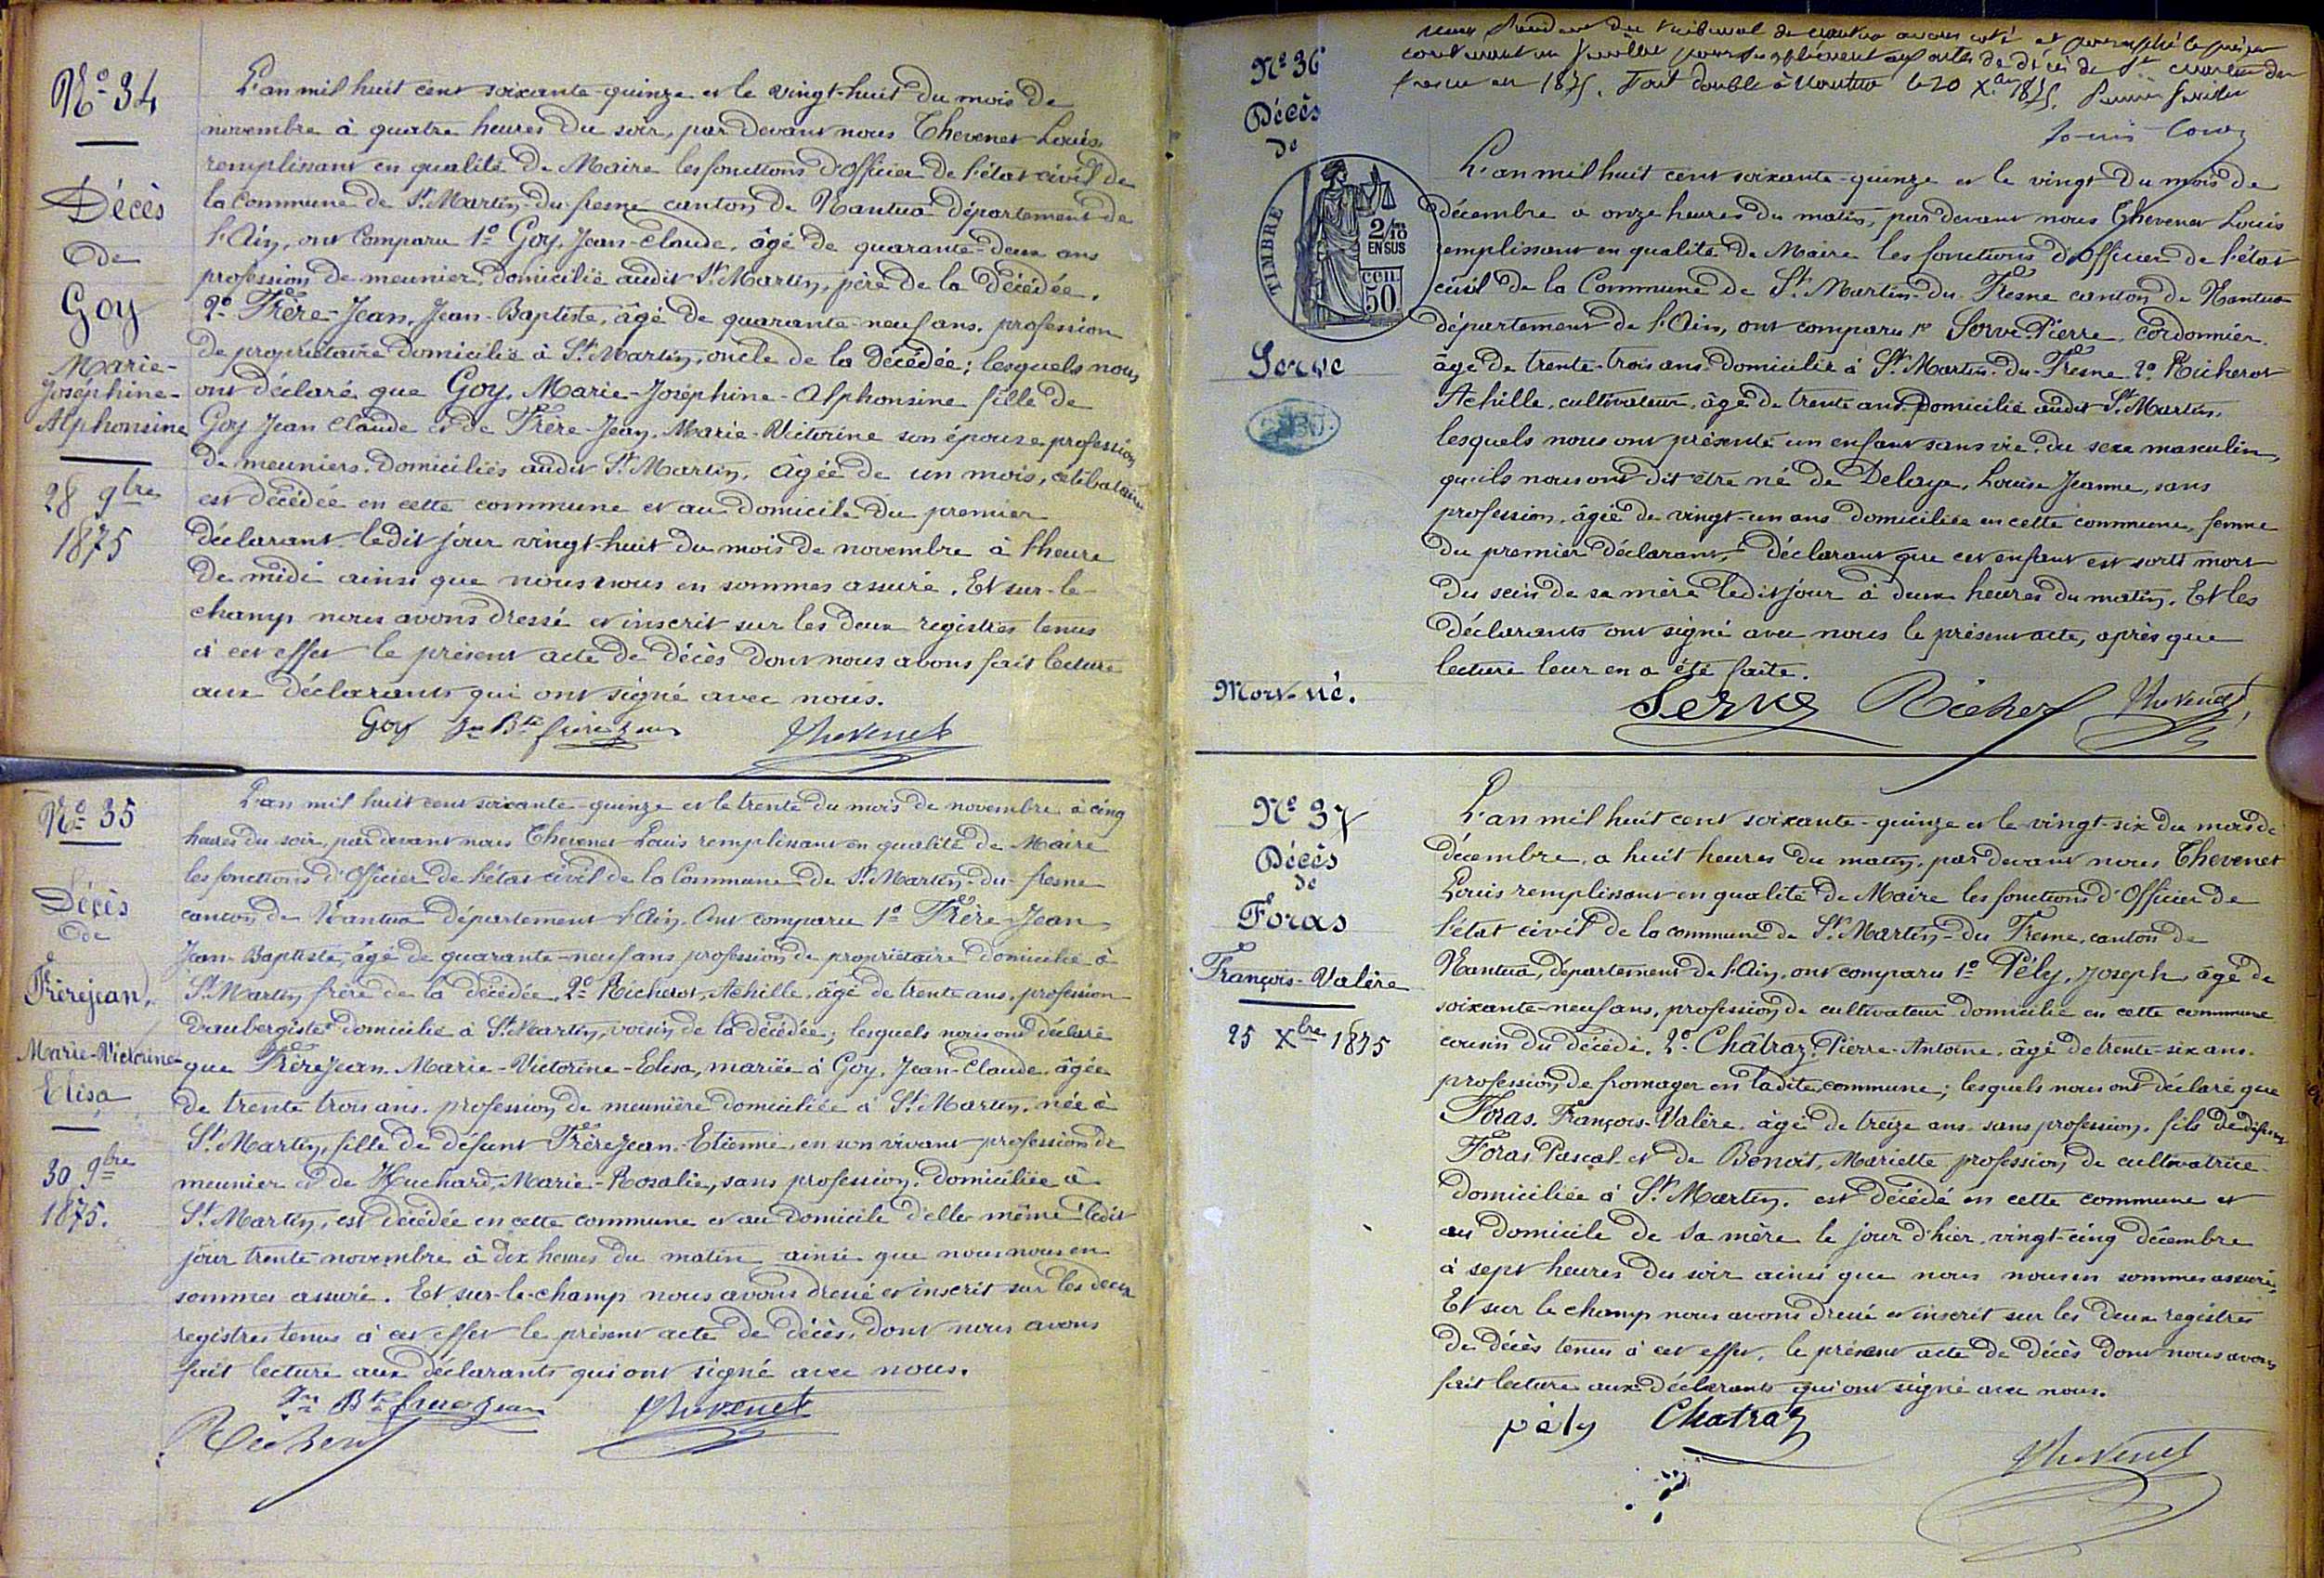 N° 34
Décès
de
Goy
Marie-
Joséphine-
Alphonsine
28 9bre
1875
L'an mil huit cent soixante-quinze et le vingt-huit du mois de
novembre à quatre heures du soir, par devant nous Thevenet Louis
remplissant en qualité de Maire les fonctions d'Officier de l'état civil de
la commune de St. Martin-du-fresne canton de Nantua département de
l'Ain, ont Comparu 1° Goy, Jean-Claude, âgé de quarante-deux ans
profession de meunier, domicilié audit St. Martin, père de la décédée.
2° Frère-Jean, Jean-Baptiste, âgé de quarante-neuf ans, profession
de propriétaire domicilié à St. Martin, oncle de la décédée; lesquels nous
ont déclaré que Goy, Marie-Joséphine-Alphonsine fille de
Goy Jean Claude et de Frère-Jean, Marie-Victorine son épouse profession
de meuniers domiciliés audit St. Martin, âgée de un mois, célibataire
est décédée en cette commune et au domicile du premier
déclarant ledit jour vingt-huit du mois de novembre à l'heure
de midi ainsi que nous nous en sommes assuré. Et sur-le-
champ nous avons dressé et inscrit sur les deux registres tenus
à cet effet le présent acte de décès dont nous avons fait lecture
aux déclarants qui ont signé avec nous.
Goy Jn Bte frère jean Thevenet
N° 35
Décès
de
Frèrejean,
Marie-Victorine-
Elisa
30 9bre
1875.
L'an mil huit cent soixante-quinze et le trente du mois de novembre à cinq
heures du soir, par devant nous Thevenet Louis remplissant en qualité de Maire
les fonctions d'Officier de l'état civil de la Commune de St. Martin-du-fresne
canton de Nantua département l'Ain, Ont comparu 1° Frère-Jean
Jean-Baptiste, âgé de quarante-neuf ans profession de propriétaire domicilié à
St. Martin frère de la décédée, 2° Richerot, Achille, âgé de trente ans, profession
d'aubergiste domicilié à St. Martin, voisin de la décédée; lesquels nous ont déclaré
que Frèrejean, Marie-Victorine-Elisa, mariée à Goy, Jean-Claude, âgée
de trente trois ans, profession de meunière domiciliée à St. Martin, née à
St. Martin, fille de défunt Frèrejean, Etienne, en son vivant profession de
meunier et de Huchard, Marie-Rosalie, sans profession, domiciliée à
St. Martin, est décédée en cette commune et au domicile d'elle même ledit
jour trente novembre à dix heures du matin ainsi que nous nous en
sommes assuré. Et sur-le-champ nous avons dressé et inscrit sur les deux
registres tenus à cet effet le présent acte de décès, dont nous avons
fait lecture aux déclarants qui ont signé avec nous.
Jn Bte frère jean Thevenet
Richerot
N° 36
Décès
de
Serve
Mort-né.
TIMBRE
2/10
EN SUS
CEN
50
du tribunal de Nantua avons coté et paraphé le présent
contenant un feuillet pour supplément aux actes de décès de St Martin du
fresne en 1875. Fait double à Nantua le 20 Xbre 1875.
L'an mil huit cent soixante-quinze et le vingt du mois de
décembre à onze heures du matin, par devant nous Thevenet Louis
remplissant en qualité de Maire les fonctions d'Officier de l'état
civil de la Commune de St. Martin-du-Fresne canton de Nantua
département de l'Ain, ont comparu 1° Serve Pierre, cordonnier,
âgé de trente-trois ans domicilié à St. Martin-du-Fresne 2° Richerot
Achille, cultivateur, âgé de trente ans domicilié audit St. Martin,
lesquels nous ont présenté un enfant sans vie, du sexe masculin,
qu'ils nous ont dit être né de Delaye, Louise Jeanne, sans
profession, âgée de vingt-un ans domiciliée en cette commune, femme
du premier déclarant, déclarant que cet enfant est sorti mort
du sein de sa mère ledit jour à deux heures du matin. Et les
déclarants ont signé avec nous le présent acte, après que
lecture leur en a été faite.
Serve Richerot Thevenet
N° 37
Décès
de
Foras
François-Valère
25 Xbre 1875
L'an mil huit cent soixante-quinze et le vingt-six du mois de
décembre, à huit heures du matin, par devant nous Thevenet
Louis remplissant en qualité de Maire les fonctions d'Officier de
l'état civil de la commune de St. Martin-du-Fresne, canton de
Nantua, département de l'Ain, ont comparu 1° Pély, Joseph, âgé de
soixante-neuf ans, profession de cultivateur domicilié en cette commune
cousin du décédé. 2° Châtraz, Pierre-Antoine, âgé de trente-six ans.
profession de fromager en ladite commune; lesquels nous ont déclaré que
Foras, François-Valère, âgé de treize ans sans profession, fils de défunt
Foras Pascal et de Benoit, Mariette profession de cultivatrice
domiciliée à St. Martin, est décédé en cette commune et
au domicile de sa mère le jour d'hier, vingt-cinq décembre
à sept heures du soir ainsi que nous nous en sommes assuré.
Et sur le champ nous avons dressé et inscrit sur les deux registres
de décès tenus à cet effet, le présent acte de décès dont nous avons
fait lecture aux déclarants qui ont signé avec nous.
pély Chatraz
Thevenet